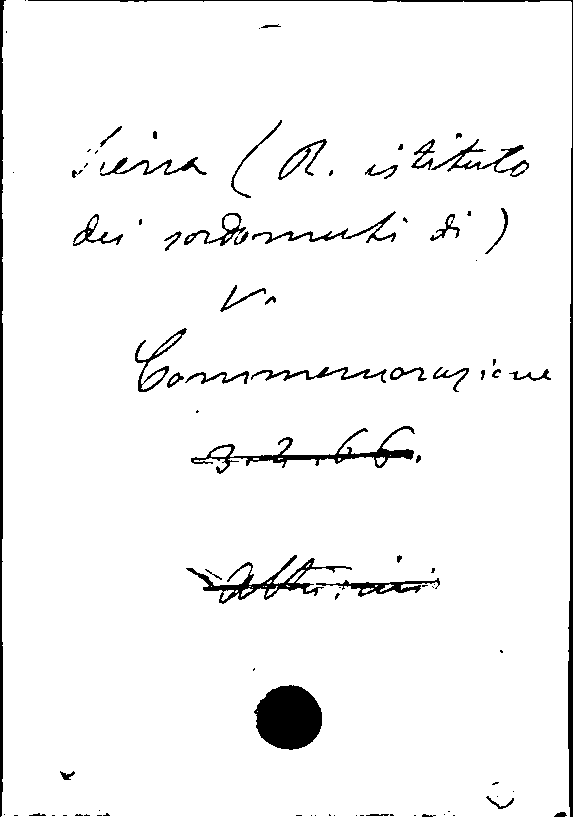 Siena (R. istituto
dei sordomuti di)
V.
Commemorazione
3.2.66.